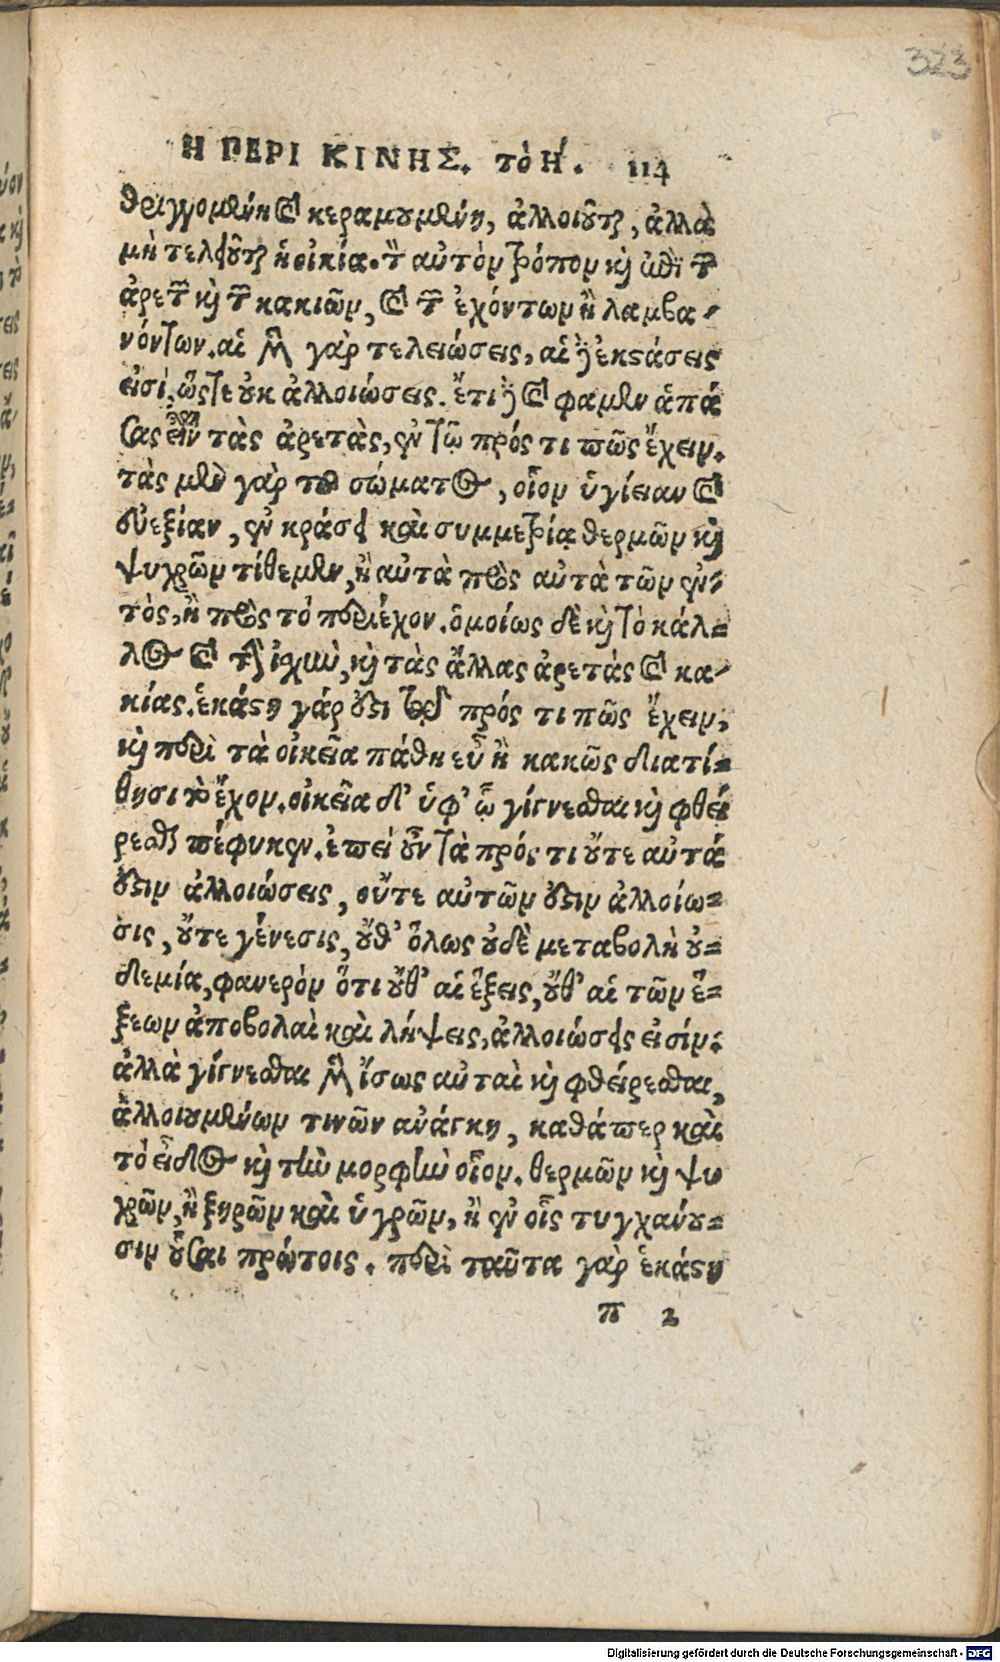 323
Η ΠΕΡΙ ΚΙΝΗΣ. τὸ Η΄. 114
θριγγομένη καὶ κεραμουμένη, ἀλλοιοῦται, ἀλλὰ
μὴ τελειοῦται ἡ οἰκία. τὸν αὐτὸν τρόπον καὶ ἐπὶ τῶν
ἀρετῶν καὶ τῶν κακιῶν, καὶ τῶν ἐχόντων ἢ λαμβα-
νόντων. αἱ μὲν γὰρ τελειώσεις, αἱ δὲ ἐκστάσεις
εἰσί, ὥστε οὐκ ἀλλοιώσεις. ἔτι δὲ καὶ φαμὲν ἁπά
σας εἶναι τὰς ἀρετὰς, ἐν τῷ πρός τι πῶς ἔχειν.
τὰς μὲν γὰρ τοῦ σώματος, οἷον ὑγίειαν καὶ
εὐεξίαν, ἐν κράσει καὶ συμμετρίᾳ θερμῶν καὶ
ψυχρῶν τίθεμεν, ἢ αὐτὰ πρὸς αὐτὰ τῶν ἐν-
τὸς, ἢ πρὸς τὸ περιέχον. ὁμοίως δὲ καὶ τὸ κάλ-
λος καὶ τὴν ἰσχὺν, καὶ τὰς ἄλλας ἀρετὰς καὶ κα-
κίας. ἑκάστη γάρ ἐστι τῷ πρός τι πῶς ἔχειν,
καὶ περὶ τὰ οἰκεῖα πάθη εὖ ἢ κακῶς διατί-
θησι τὸ ἔχον. οἰκεῖα δ' ὑφ' ὧ γίγνεσθαι καὶ φθεί
ρεσθαι πέφυκεν. ἐπεὶ οὖν τὰ πρός τι οὔτε αὐτά
ἐστιν ἀλλοιώσεις, οὔτε αὐτῶν ἐστιν ἀλλοίω-
σις, οὔτε γένεσις, οὔθ' ὅλως οὐδὲ μεταβολὴ οὐ-
δεμία, φανερὸν ὅτι οὔθ' αἱ ἕξεις, οὔθ' αἱ τῶν ἕ-
ξεων ἀποβολαὶ καὶ λήψεις, ἀλλοιώσεις εἰσίν.
ἀλλὰ γίγνεσθαι μὲν ἴσως αὐταὶ καὶ φθείρεσθαι,
ἀλλοιουμένων τινῶν ἀνάγκη, καθάπερ καὶ
τὸ εἶδος καὶ τὴν μορφὴν οἷον. θερμῶν καὶ ψυ
χρῶν, ἢ ξηρῶν καὶ ὑγρῶν, ἢ ἐν οἷς τυγχάνου-
σιν οὖσαι πρώτοις. περὶ ταῦτα γὰρ ἑκάστη
π 2
Digitalisierung gefördert durch die Deutsche Forschungsgemeinschaft - DFG